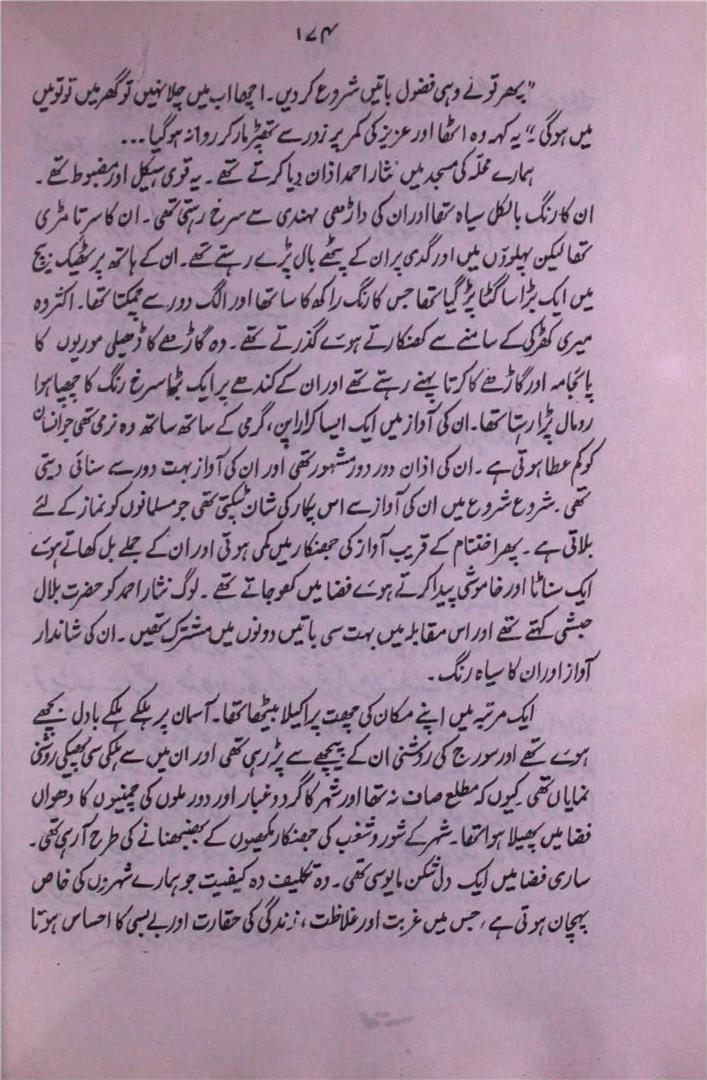 ۱۷۴
"پھر تو نے وہی فضول باتیں شروع کر دیں۔ اچھا اب میں چلا نہیں تو گھر میں تو تو میں
میں ہو گی۔" یہ کہہ وہ اٹھا اور عزیز کی کمر پر زور سے تھپڑ مار کر روانہ ہو گیا...
ہمارے محلہ کی مسجد میں نثار احمد اذان دیا کرتے تھے۔ یہ قوی ہیکل اور مضبوط تھے۔
ان کا رنگ بالکل سیاہ تھا اور ان کی داڑھی مہندی سے سرخ رہتی تھی۔ ان کا سر تامڑی
تھا لیکن پہلوؤں میں اور گدی پر ان کے پٹھے بال پڑے رہتے تھے۔ ان کے ہاتھ پر ٹھیک بیچ
میں ایک بڑا سا گٹا پڑ گیا تھا جس کا رنگ راکھ کا سا تھا اور الگ دور سے چمکتا تھا۔ اکثر وہ
میری کھڑکی کے سامنے سے کھنکارتے ہوے گذرتے تھے۔ وہ گاڑھے کا ڈھیلی موریوں کا
پائجامہ اور گاڑھے کا کرتا پہنے رہتے تھے اور ان کے کندھے پر ایک بڑا سرخ رنگ کا چھپا ہوا
رومال پڑا رہتا تھا۔ ان کی آواز میں ایک ایسا کرارا پن، گرمی کے ساتھ ساتھ وہ نرمی تھی جو انسان
کو کم عطا ہوتی ہے۔ ان کی اذان دور دور مشہور تھی اور ان کی آواز بہت دور سے سنائی دیتی
تھی۔ شروع شروع میں ان کی آواز سے اس پکار کی شان ٹپکتی تھی جو مسلمانوں کو نماز کے لئے
بلاتی ہے۔ پھر اختتام کے قریب آواز کی جھنکار میں کمی ہوتی اور ان کے جملے بل کھاتے ہوے
ایک سناٹا اور خاموشی پیدا کرتے ہوے فضا میں کھو جاتے تھے۔ لوگ نثار احمد کو حضرت بلال
حبشی کہتے تھے اور اس مقابلہ میں بہت سی باتیں دونوں میں مشترک تھیں۔ ان کی شاندار
آواز اور ان کا سیاہ رنگ۔
ایک مرتبہ میں اپنے مکان کی چھت پر اکیلا بیٹھا تھا۔ آسمان پر ہلکے ہلکے بادل بچھے
ہوے تھے اور سورج کی روشنی ان کے پیچھے سے پڑ رہی تھی اور ان میں سے ہلکی سی پھیکی روشنی
نمایاں تھی کیوں کہ مطلع صاف نہ تھا اور شہر کا گرد و غبار اور دور ملوں کی چمنیوں کا دھواں
فضا میں پھیلا ہوا تھا۔ شہر کے شور و شغب کی جھنکار مکھیوں کے بھنبھنانے کی طرح آرہی تھی۔
ساری فضا میں ایک دل شکن مایوسی تھی۔ وہ تکلیف دہ کیفیت جو ہمارے شہروں کی خاص
پہچان ہوتی ہے، جس میں غربت اور غلاظت، زندگی کی حقارت اور بے بسی کا احساس ہوتا